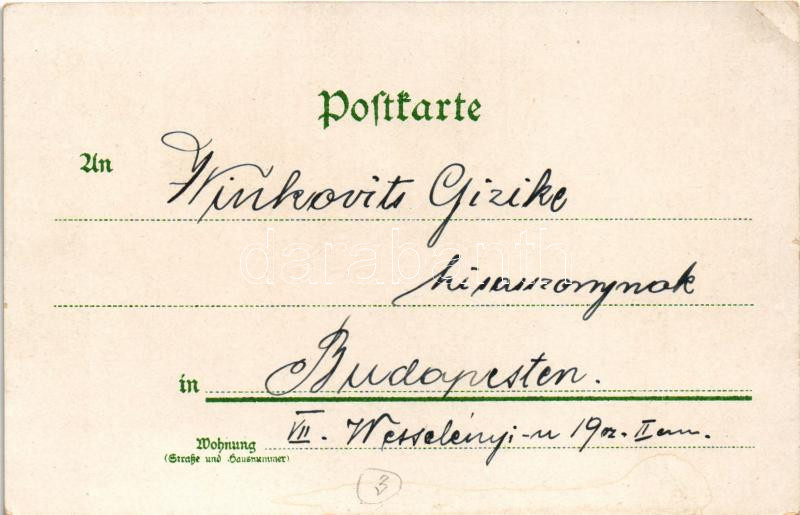 Postkarte
An Winkovits Gizike
kisasszonynak
in Budapesten.
VII. Wesselényi-u 19sz. II em.
Wohnung
(Straße und Hausnummer)
3
darabanth